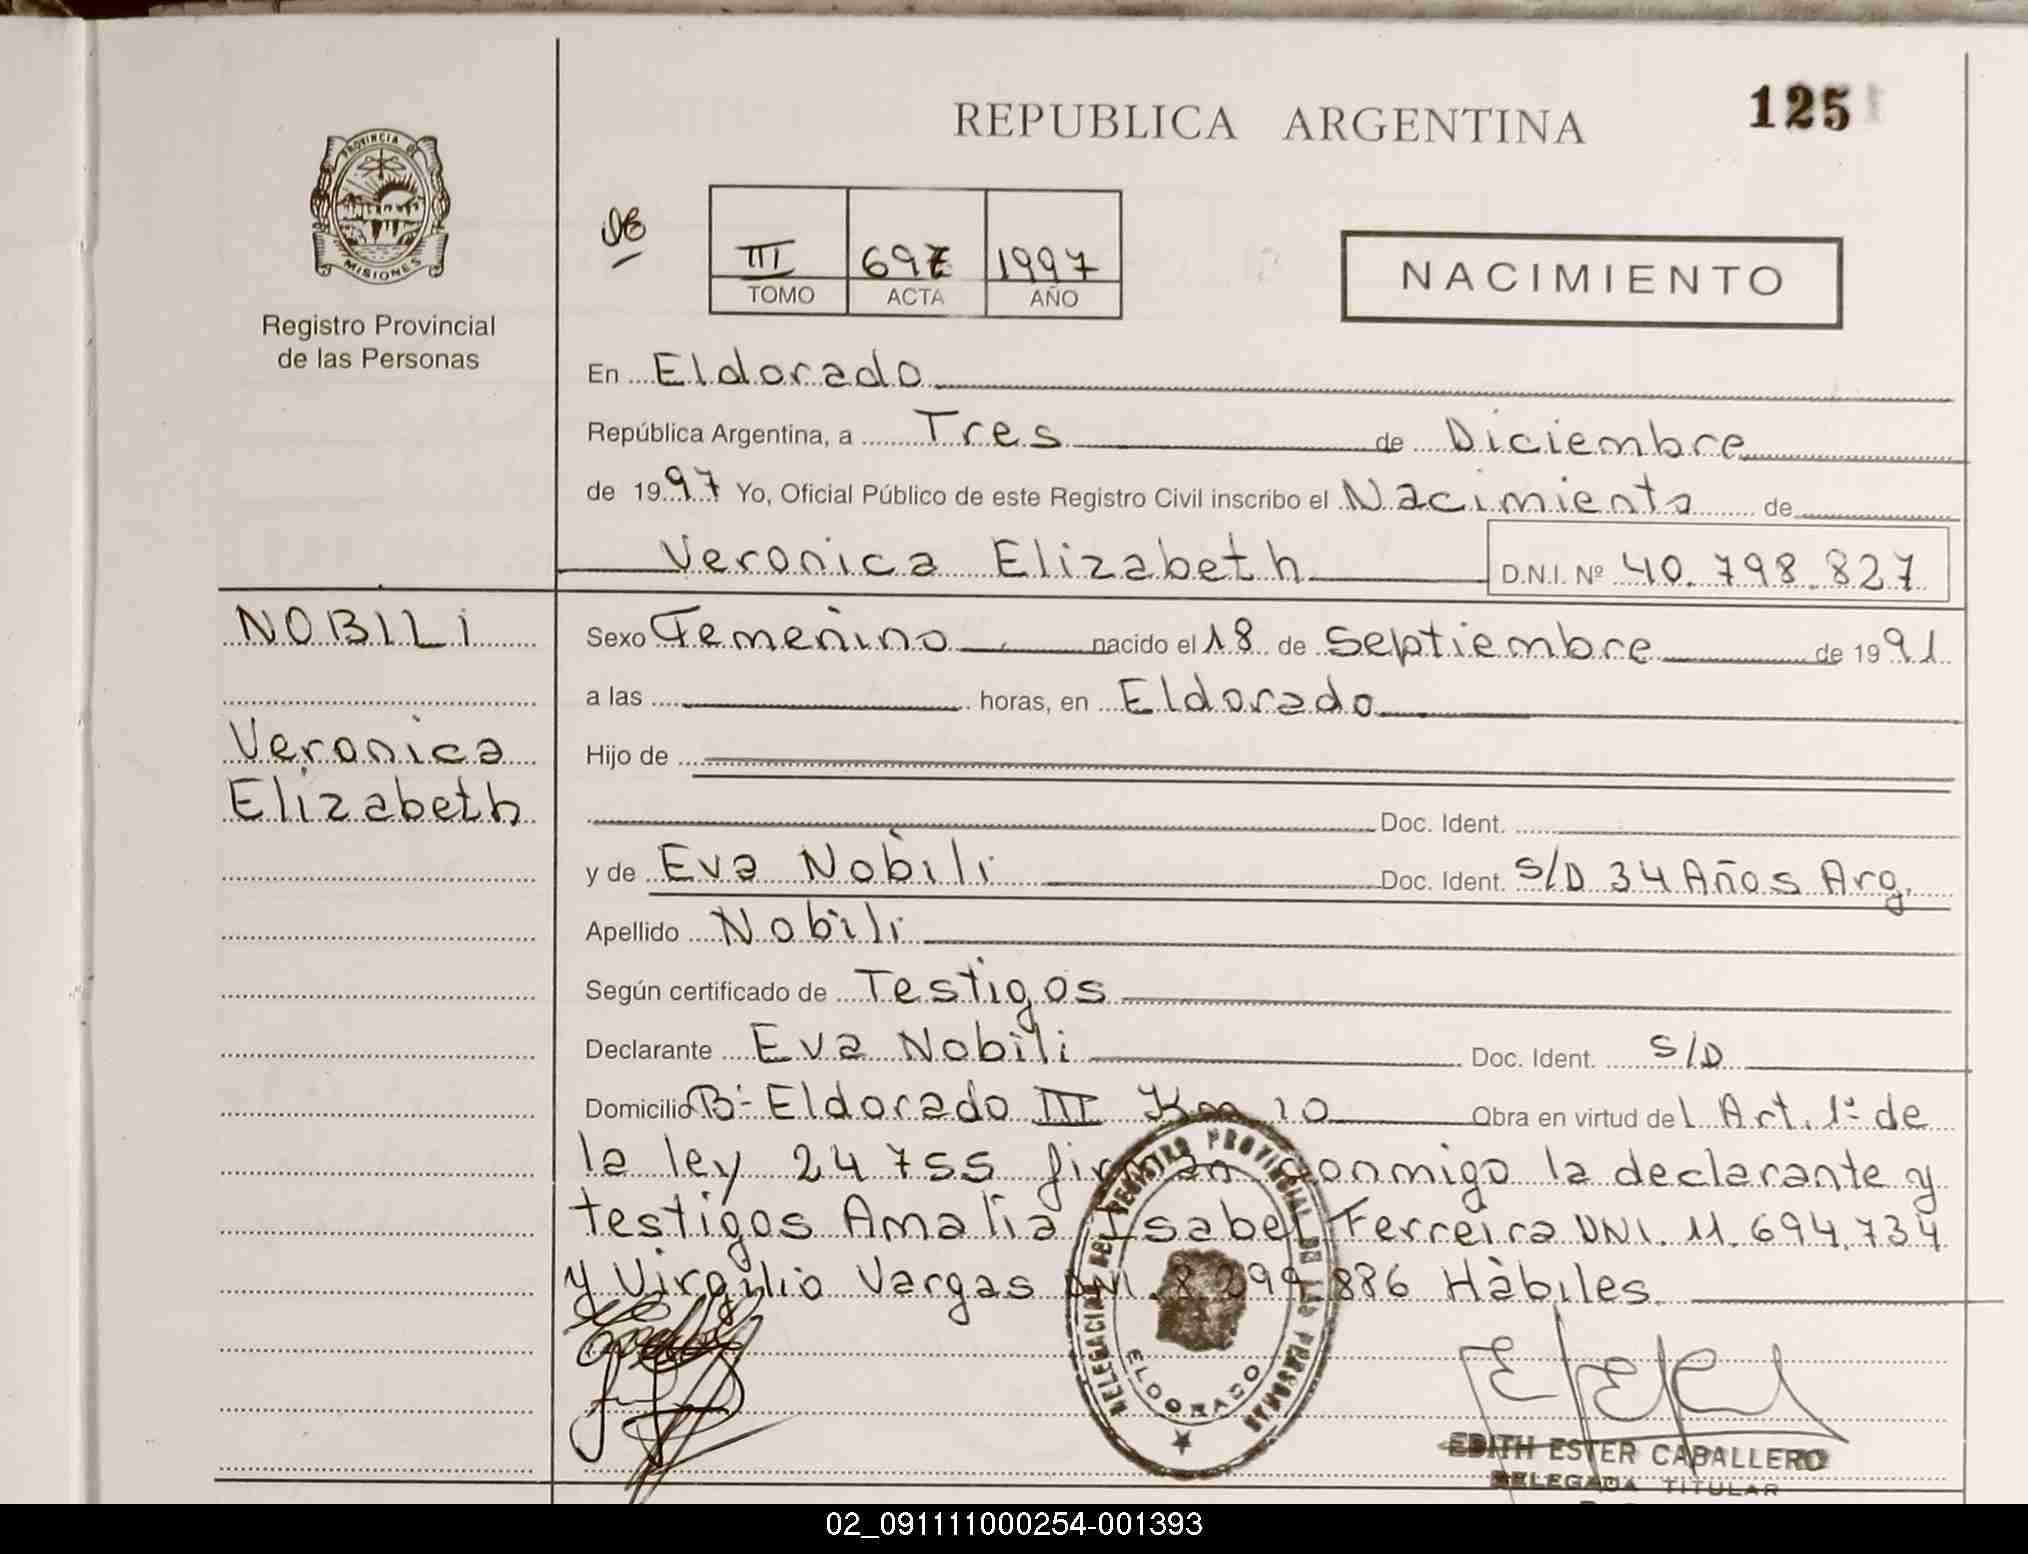 125
REPUBLICA ARGENTINA
PROVINCIA DE
MISIONES
Registro Provincial
de las Personas
III 697 1997
TOMO ACTA AÑO
NACIMIENTO
En Eldorado
República Argentina, a Tres de Diciembre
de 1997 Yo, Oficial Público de este Registro Civil inscribo el Nacimiento de
Veronica Elizabeth D.N.I. Nº 40.798.827
NOBILI
Veronica
Elizabeth
Sexo Femenino nacido el 18 de Septiembre de 1991
a las horas, en Eldorado
Hijo de
Doc. Ident.
y de Eva Nobili Doc. Ident. S/D 34 Años Arg.
Apellido Nobili
Según certificado de Testigos
Declarante Eva Nobili Doc. Ident. S/D
Domicilio Bº Eldorado III Km 10 Obra en virtud del Art. 1º de
la ley 24755 firman conmigo la declarante y
testigos Amalia Isabel Ferreira DNI. 11.694.734
y Virgilio Vargas DNI. 8.299.886 Hàbiles.
DELEGACION DEL REGISTRO PROVINCIAL DE LAS PERSONAS
ELDORADO
EDITH ESTER CABALLERO
DELEGADA TITULAR
02_091111000254-001393